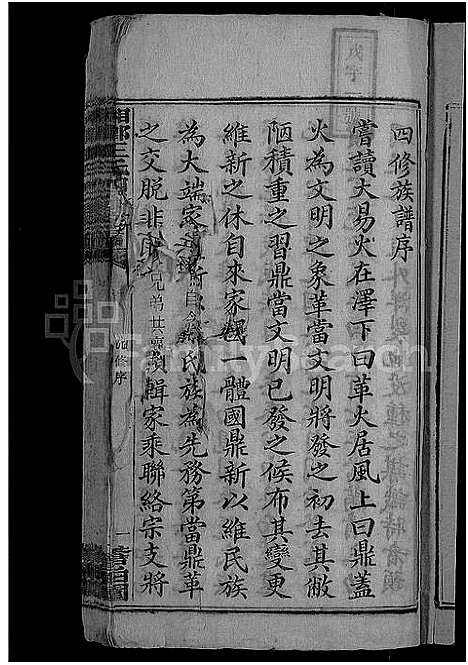 四修族譜序
嘗讀大易火在澤下曰革火居風上曰鼎蓋
火為文明之象革當文明將發之初去其敝
陋積重之習鼎當文明已發之候布其變更
維新之休自來家國一體國鼎新以維民族
為大端家鼎新自以氏族為先務第當鼎革
之交脫非兄弟其襄纂輯家乘聯絡宗支將
王氏
四修序
一
FamilySearch